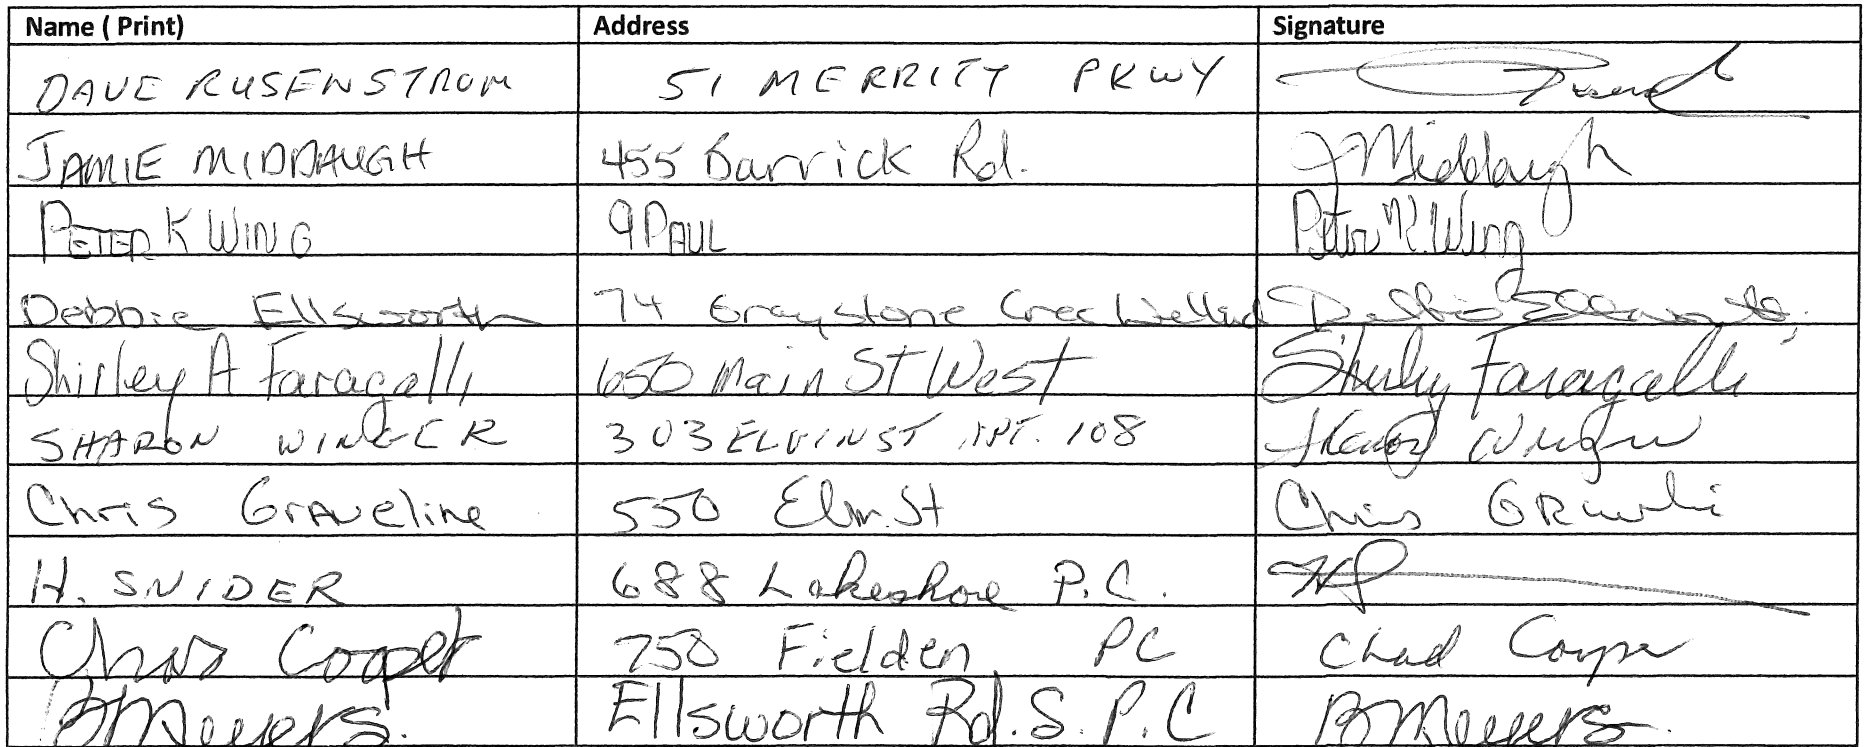 Name ( Print) Address Signature
DAVE RUSENSTROM 51 MERRITT PKWY
JAMIE MIDDAUGH 455 Barrick Rd. J Middaugh
PETER K WING 9 PAUL Peter K. Wing
Debbie Ellsworth 74 Graystone Cres Welland Debbie Ellsworth
Shirley A Faragalli 650 Main St West Shirley Faragalli
SHARON WINGER 303 ELVIN ST APT. 108 Sharon Winger
Chris Graveline 550 Elm St Chris
H. SNIDER 688 Lakeshore P.C.
Cooper 750 Fielden PC Chad Cooper
B Meyers. Ellsworth Rd. S. P.C B Meyers.